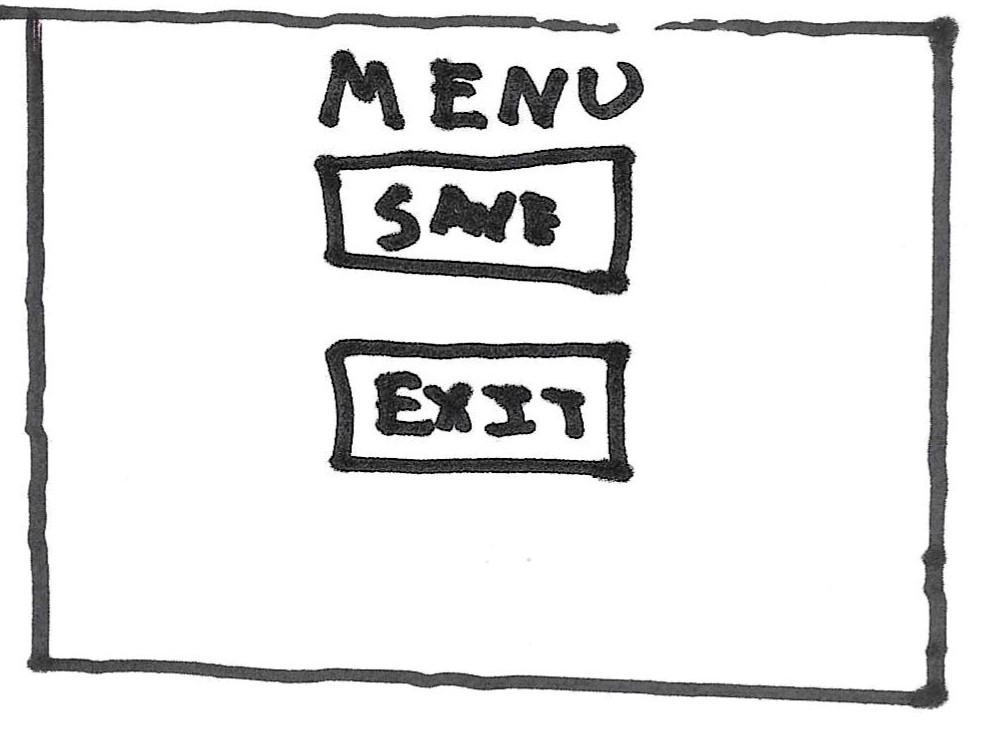 MENU
SAVE
EXIT